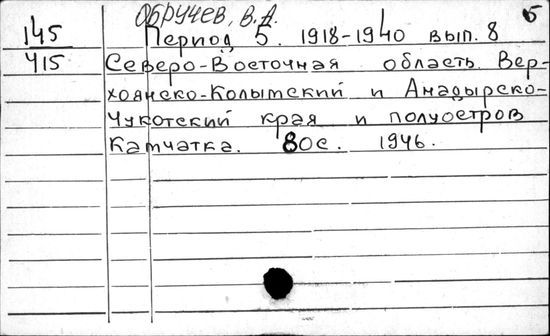 ОБРУЧЕВ, В.А.
б
145 Период 5. 1918-1940 вып. 8
415 Северо-Восточная область Вер-
хоянско-Колымский и Анадырско-
Чукотский края и полуостров
Камчатка. 80с. 1946.